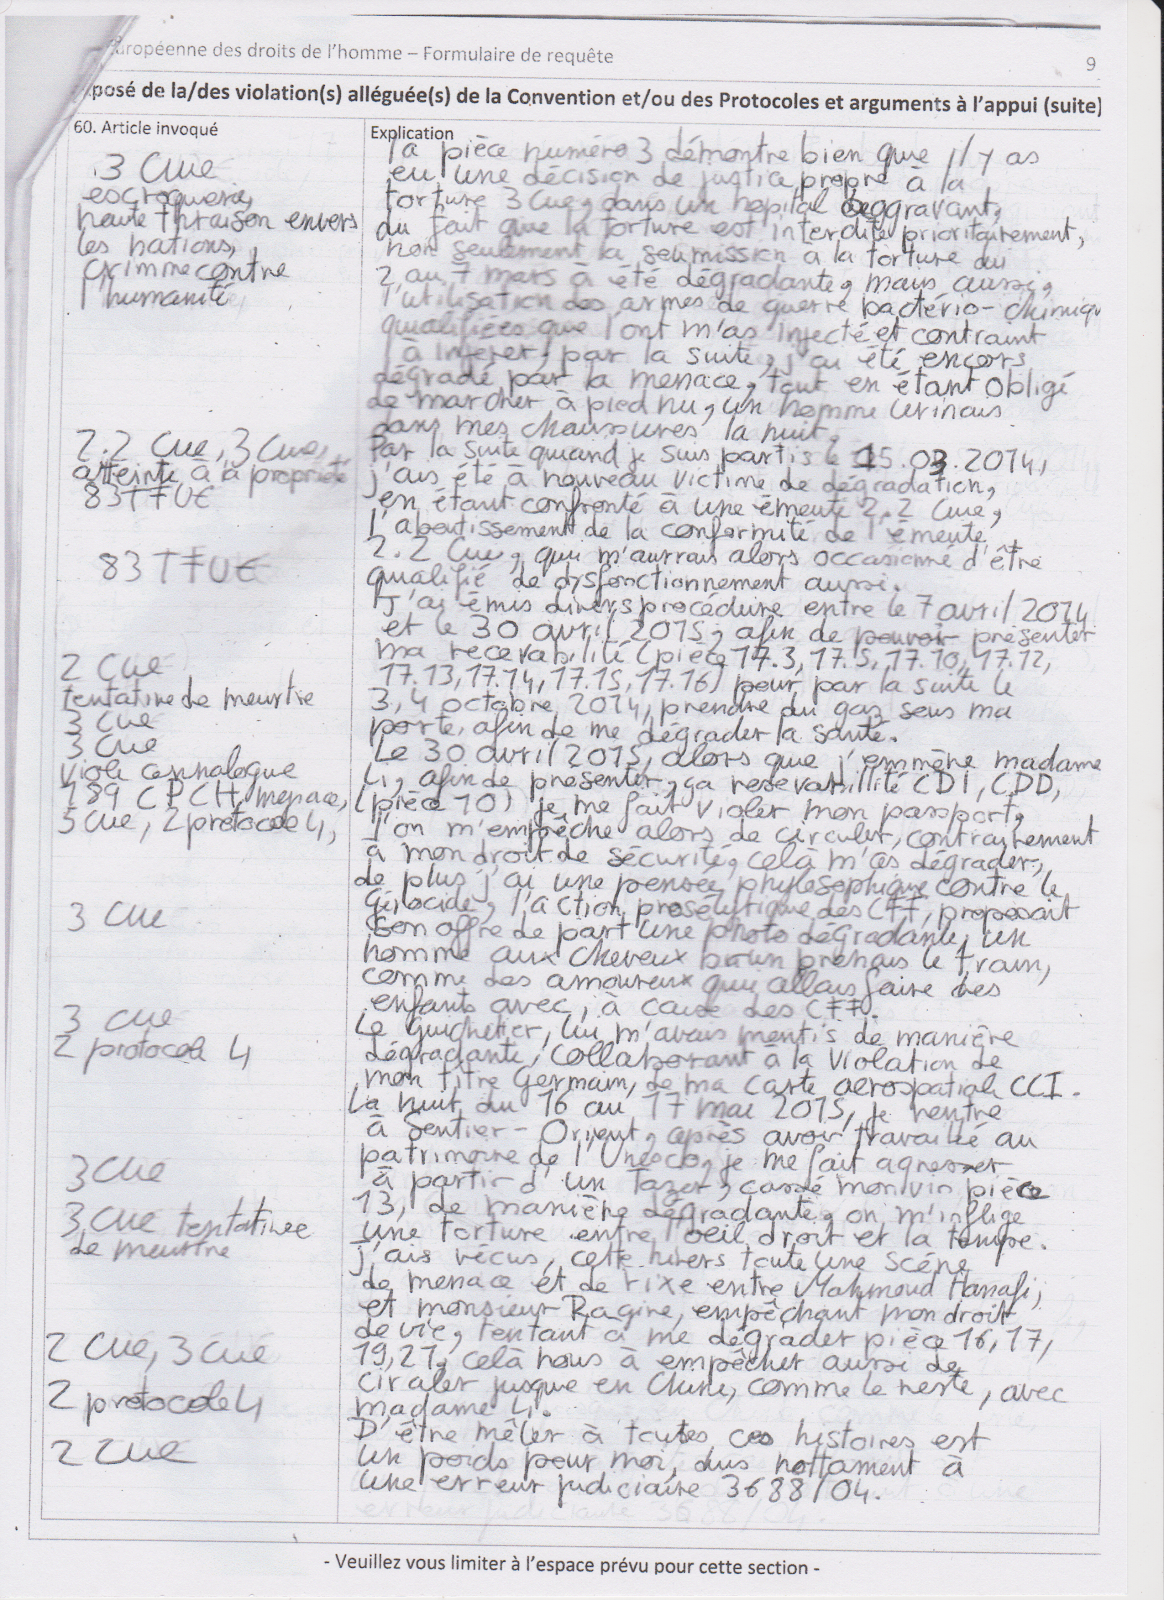 uropéenne des droits de l'homme – Formulaire de requête
9
posé de la/des violation(s) alléguée(s) de la Convention et/ou des Protocoles et arguments à l'appui (suite)
60. Article invoqué
Explication
3 Cue
escroquerie,
haute thraison envers
les nations,
crimme contre
l'humanité
la pièce numéro 3 démontre bien que il y as
eu une décision de justice propre à la
torture 3 Cue, dans un hopital aggravant,
du fait que la torture est interdite prioritairement,
non seulement la soumission a la torture du
2 au 7 mars à été dégradante, mais aussi,
l'utilisation des armes de guerre bactério-chimiqu
qualifiées que l'ont m'as injecté et contraint
à ingerer, par la suite, j'ai été encors
dégradé par la menace, tout en étant obligé
de marcher à pied nu, un homme urinais
dans mes chaussures la nuit.
2.2 Cue, 3 Cue,
atteinte à la propriété
83 TFUE
Par la suite quand je suis partis le 15.03.2014,
j'ais été à nouveau victime de dégradation,
en étant confronté à une émeute 2.2 Cue,
l'aboutissement de la conformité de l'émeute
83 TFUE
2.2 Cue, qui m'aurais alors occasionné d'être
qualifié de dysfonctionnement aussi.
J'ai émis divers procédure entre le 7 avril 2014
et le 30 avril 2015, afin de pouvoir présenter
ma recevabilité (pièce 17.3, 17.5, 17.10, 17.12,
17.13, 17.14, 17.15, 17.16) pour par la suite le
2 Cue
tentative de meurtre
3 Cue
3 Cue
3, 4 octobre 2014, prendre du gaz sous ma
porte, afin de me dégrader la santé.
Le 30 avril 2015, alors que j'emmène madame
189 CPCH, menace,
5 Cue, 2 protocole 4,
Li, afin de présenter, ça recevabillité CDI, CDD,
(pièce 10) je me fait violer mon passport,
l'on m'empêche alors de circuler, contrairement
à mon droit de sécurité, cela m'as dégrader,
de plus j'ai une pensée phylosophique contre le
3 Cue
Génocide, l'action prosélytique des CFF, proposait
son offre de part une photo dégradante, un
homme aux cheveux brun prenais le train,
comme des amoureux qui allais faire des
enfants avec, à cause des CFF.
3 Cue
2 protocol 4
Le Guichetier, lui m'avais mentis de manière
dégradante, collaborant à la violation de
mon titre Germain, de ma carte aérospatiale CCI.
La nuit du 16 au 17 mai 2015, je rentre
à Sentier-Orient, après avoir travaillé au
patrimoine de l'Unesco, je me fait agresser
3 Cue
à partir d'un Tazer, cassé mon vin pièce
3 Cue tentativee
de meurtre
13, de manière dégradante, on m'inflige
une torture entre l'oeil droit et la tempe.
j'ais vécus, cette hivers toute une scéne
de menace et de rixe entre Mahmoud Hanafi,
et monsieur Ragine, empêchant mon droit
de vie, tentant à me dégrader pièce 16, 17,
2 Cue, 3 Cue
19, 21, celà nous à empêcher aussi de
2 protocole 4
circuler jusque en Chine, comme le reste, avec
madame Li.
2 Cue
D'être mêler à toutes ces histoires est
un poids pour moi, dus nottament à
une erreur judiciaire 3688/04.
- Veuillez vous limiter à l'espace prévu pour cette section -